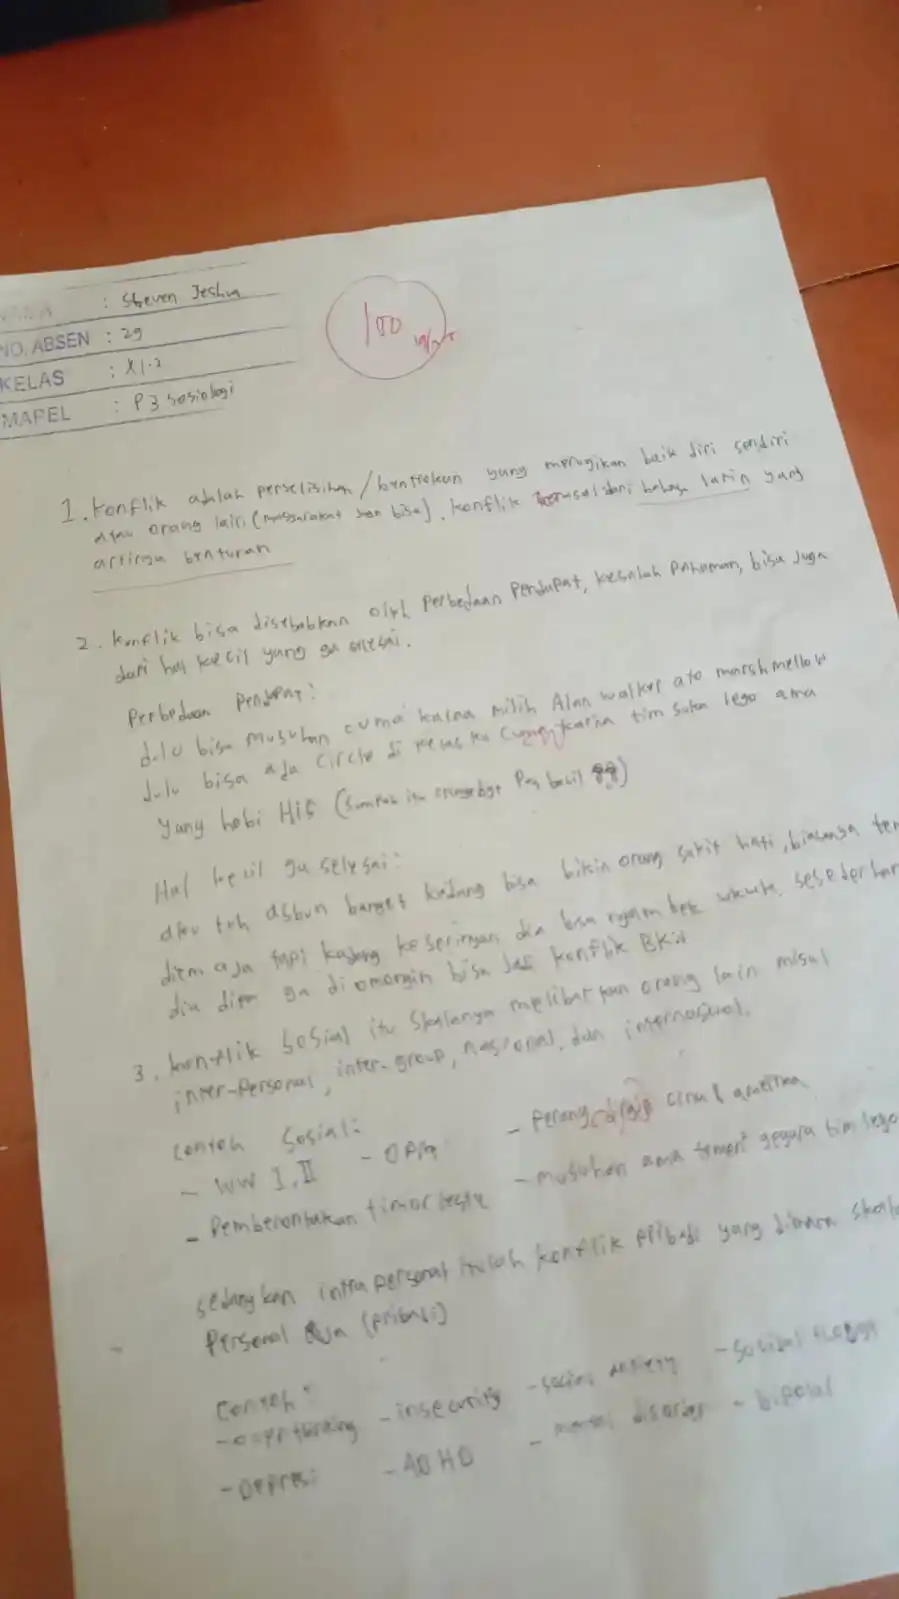 : Steven Jeshua
NO. ABSEN : 29
KELAS : XI.2
MAPEL : P3 Sosiologi
100
1. Konflik adalah perselisihan / bentrokan yang merugikan baik diri sendiri
atau orang lain (masyarakat juga bisa). Konflik berasal dari bahasa latin yang
artinya benturan
2. Konflik bisa disebabkan oleh perbedaan pendapat, kesalah pahaman, bisa juga
dari hal kecil yang ga selesai.
Perbedaan pendapat:
dulu bisa musuhan cuma karna milih Alan walker ato marshmellow
dulu bisa ada circle di kelas ku karna tim suka lego ama
yang hobi HTS (sumpah itu bgt)
Hal kecil ga selesai:
aku tuh asbun banget kadang bisa bikin orang sakit hati, biasanya
diem aja tapi kadang keseringan dia bisa ngambek wkwk.
dia diem ga diomongin bisa jadi konflik
3. Konflik sosial itu skalanya melibatkan orang lain misal
inter-personal, inter-group, nasional, dan internasional.
Contoh sosial:
- WW I, II - OPM - Perang amerika
- Pemberontakan timor leste - musuhan ama temen² gegara tim lego
sedangkan intra personal itulah konflik pribadi yang dimana
personal aja (pribadi)
Contoh:
- overthinking - insecurity - social anxiety
- Depresi - ADHD - mental disorder - bipolar